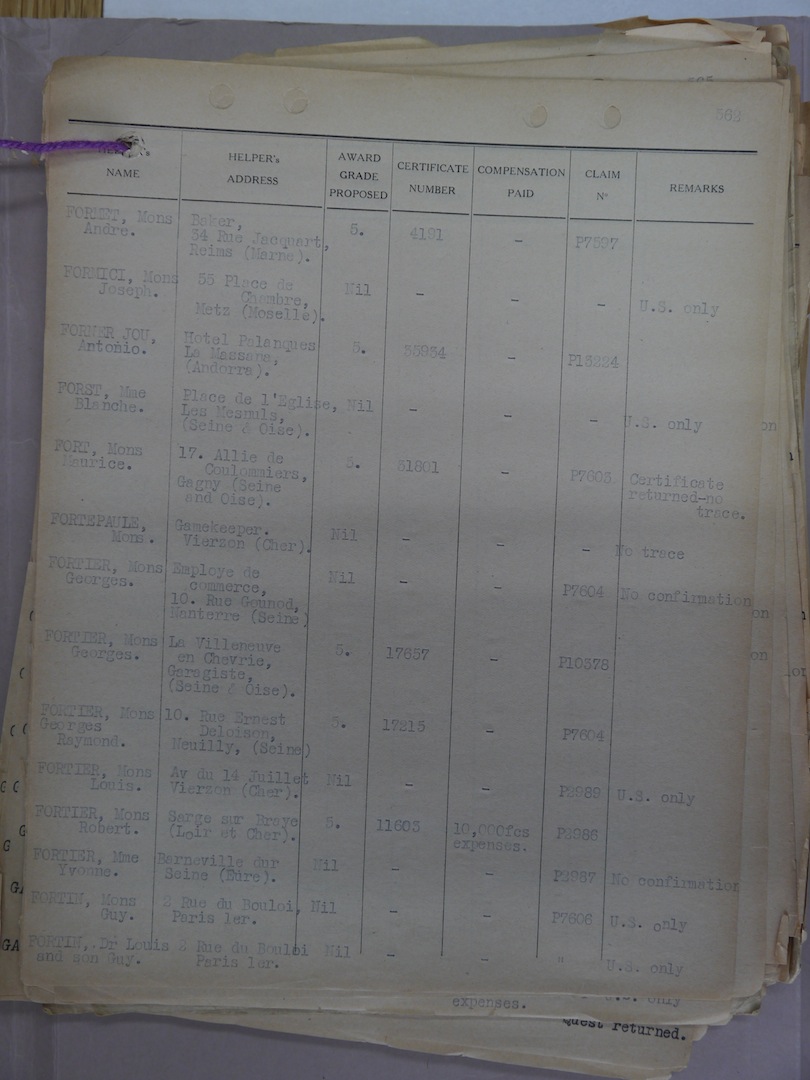 562
HELPER's NAME
HELPER's ADDRESS
AWARD GRADE PROPOSED
CERTIFICATE NUMBER
COMPENSATION PAID
CLAIM Nº
REMARKS
FORENT, Mons Baker, 5. 4191 - P7597
Andre. 34 Rue Jacquart,
Reims (Marne).
FORMICI, Mons 55 Place de Nil - - - U.S. only
Joseph. Chambre,
Metz (Moselle).
FORNER JOU, Hotel Palanques 5. 35934 - P13224
Antonio. La Massana,
(Andorra).
FORST, Mme Place de l'Eglise, Nil - - - U.S. only
Blanche. Les Mesnuls,
(Seine & Oise).
FORT, Mons 17. Allie de 5. 31801 - P7603 Certificate
Maurice. Coulommiers, returned-no
Gagny (Seine trace.
and Oise).
FORTEPAULE, Gamekeeper. Nil - - - No trace
Mons. Vierzon (Cher).
FORTIER, Mons Employe de Nil - - P7604 No confirmation
Georges. commerce,
10. Rue Gounod,
Nanterre (Seine)
FORTIER, Mons La Villeneuve 5. 17657 - P10378
Georges. en Chevrie,
Garagiste,
(Seine & Oise).
FORTIER, Mons 10. Rue Ernest 5. 17215 - P7604
Georges Deloison,
Raymond. Neuilly, (Seine)
FORTIER, Mons Av du 14 Juillet Nil - - P2989 U.S. only
Louis. Vierzon (Cher).
FORTIER, Mons Sarge sur Braye 5. 11603 10,000fcs P2986
Robert. (Loir et Cher). expenses.
FORTIER, Mme Barneville dur Nil - - P2987 No confirmation
Yvonne. Seine (Eure).
FORTIN, Mons 2 Rue du Bouloi, Nil - - P7606 U.S. only
Guy. Paris 1er.
FORTIN, Dr Louis 2 Rue du Bouloi Nil - - " U.S. only
and son Guy. Paris 1er.
expenses. U.S. only
quest returned.